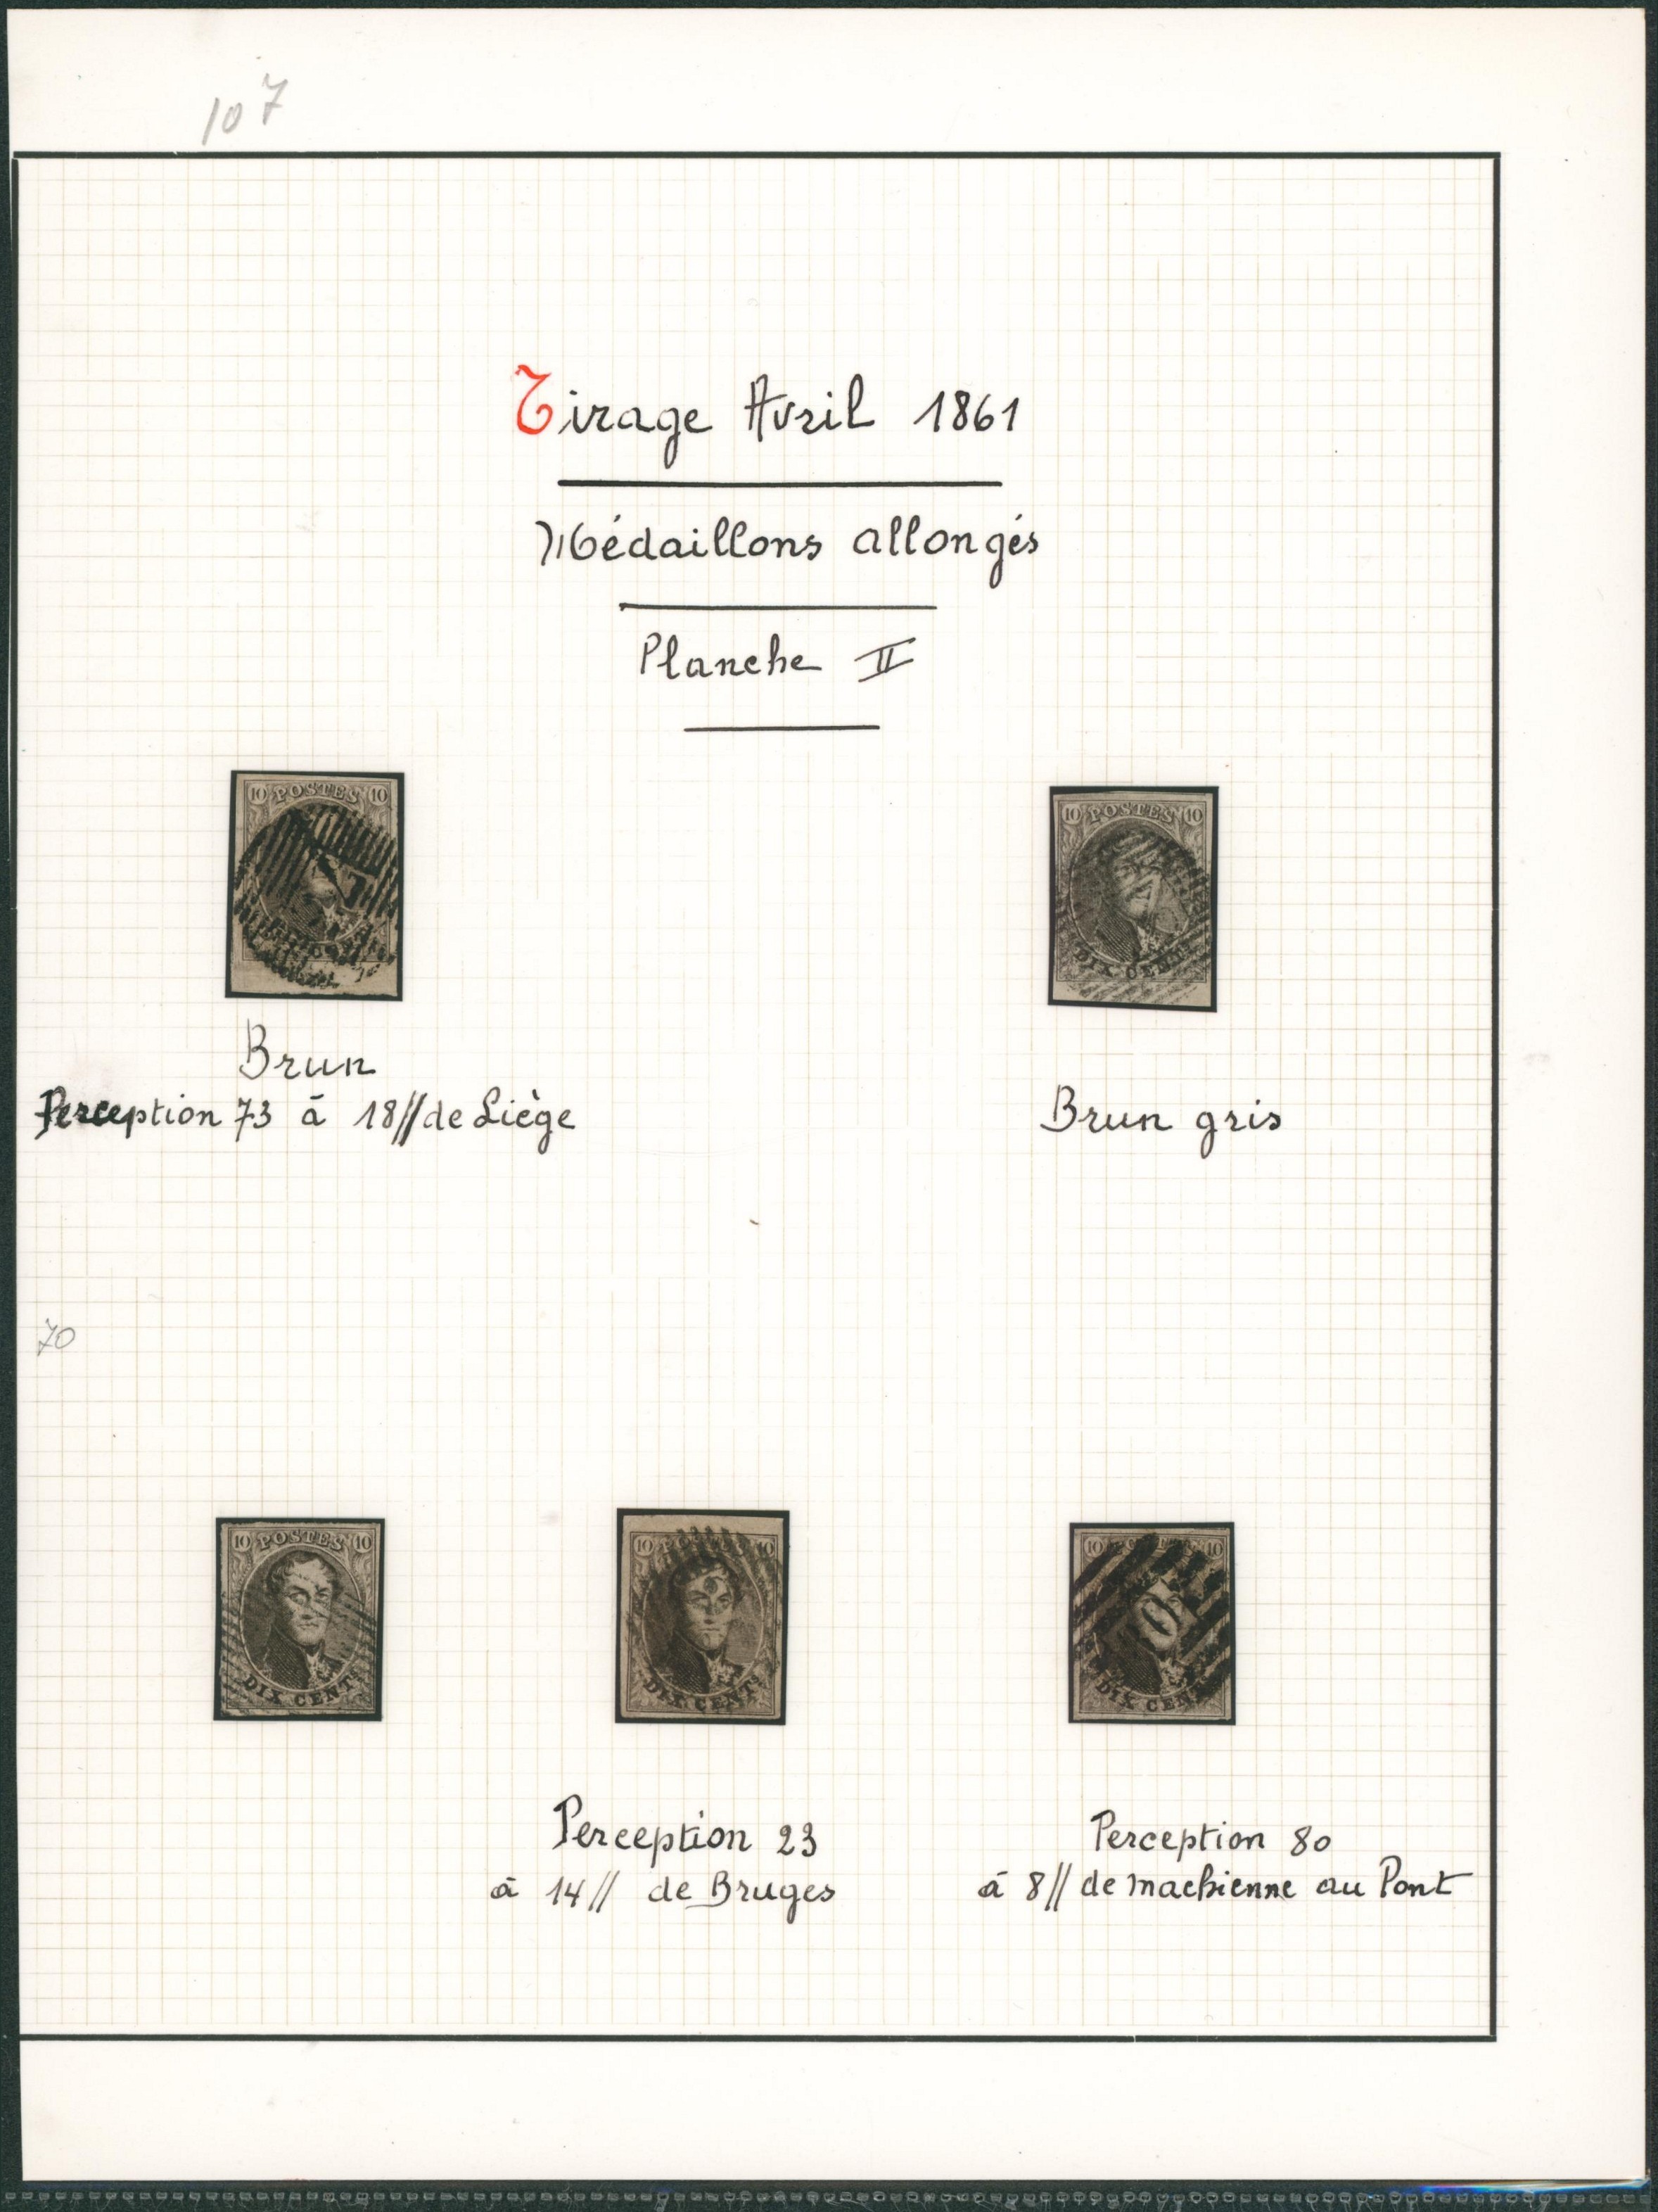 107
Tirage Avril 1861
Médaillons allongés
Planche II
10 POSTES 10
10 POSTES 10
DIX CENT
Brun
Perception 73 à 18// de Liège
Brun gris
70
10 POSTES 10
DIX CENTS
10 POSTES 10
DIX CENTS
10 10
DIX CEN
Perception 23
à 14// de Bruges
Perception 80
à 8// de machienne au Pont